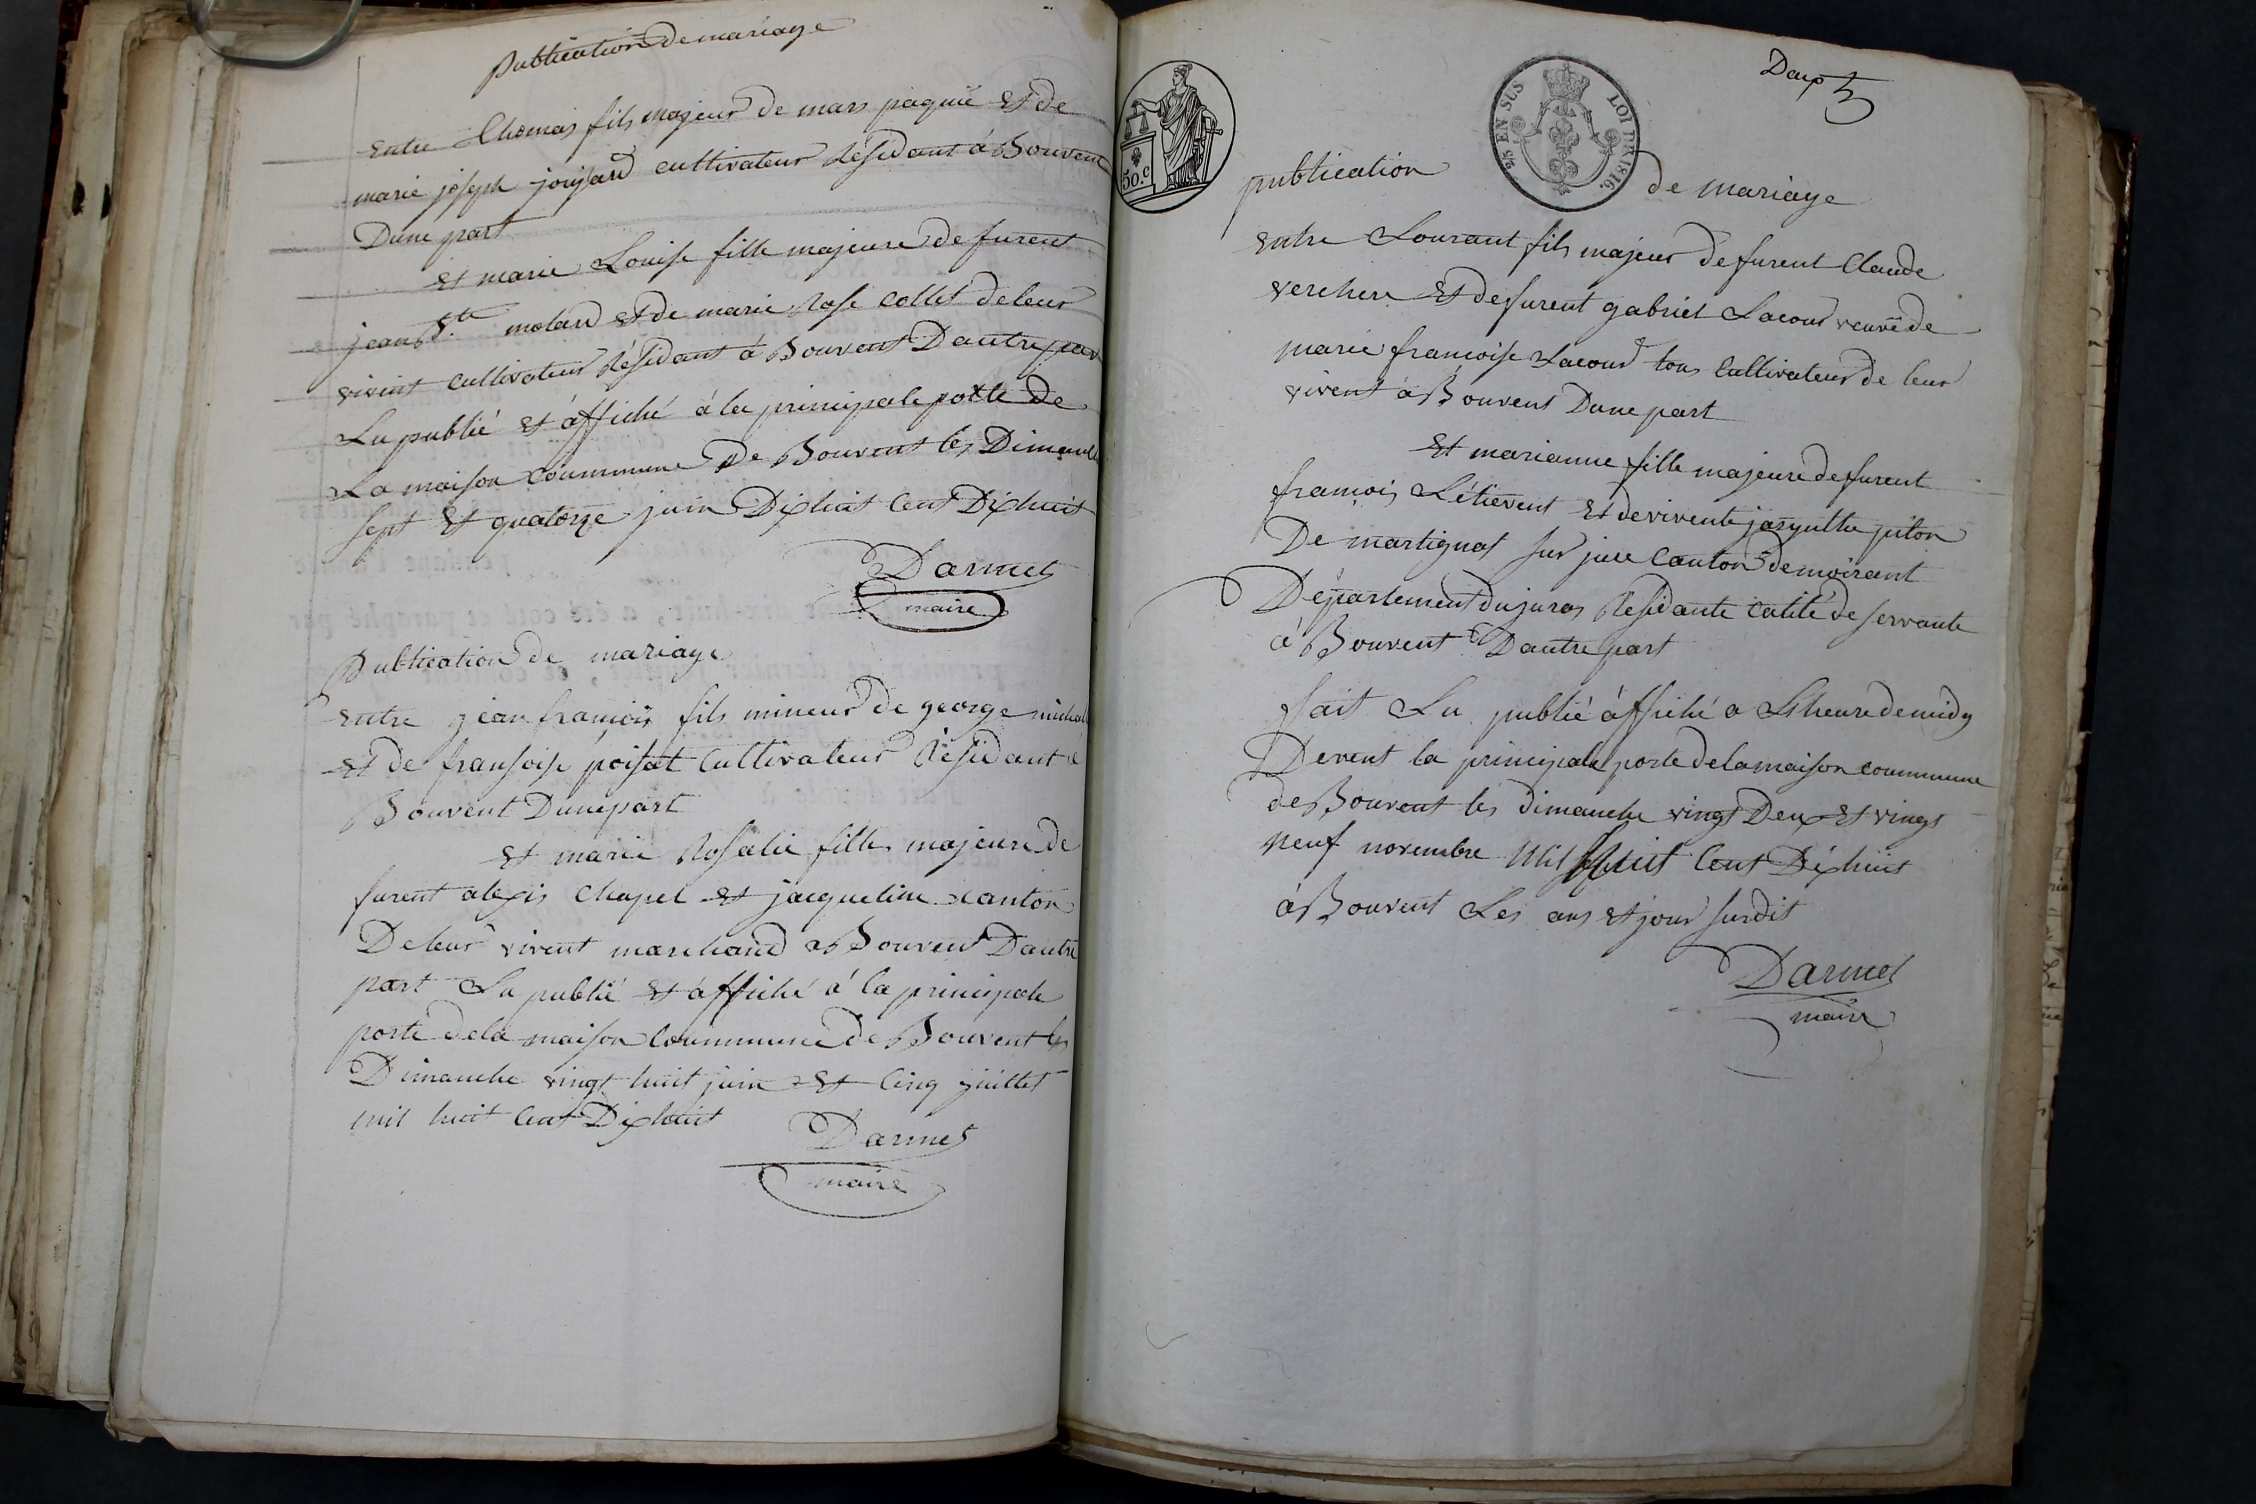 publication de mariage
entre Thomas fils majeur de marc paquié Et de
marie joseph joujard cultivateur Résidant à Bouvent
Dune part
et marie Louise fille majeure de furent
jean Bte moland et de marie Rose collet deleur
vivint cultivateur Résidant à Bouvent Dautre par
Lu publié et áffiché à la principale porte de
La maison Coummune De Bouvent les Dimanche
sept Et quatorze juin Dixhuit Cent Dixhuit
Darmet
maire
Publication de mariage
entre jean françois fils mineur de george michal
et de fransoise poisat Cultivateur Résidant à
Bouvent Dunepart
et marie Rosalie fille majeure de
furent alexis Chapel et jacqueline
Deleur vivent marchand a Bouvent Dautre
part Lu publié et áffiché á la principale
porte dela maison Coummune de Bouvent les
Dimanche vingt huit juin et Cinq juillet
mil huit Cent Dixhuit
Darmet
maire
50.c
25 EN SUS LOI DE 1816.
Deux
publication de mariage
entre Lourant fils majeur de furent Claude
verchere Et defurent gabriel Lacour veuve de
marie francoise Lacour tous Cultivateur de leur
vivent à Bouvent Dune part
Et marianne fille majeure defurent
françois Létievent Et devivente
De martignat sur Canton demoirant
Département dujuras Résidante calité de servante
à Bouvent Dautre part
fait Lu publié áffiché a Lheure demidy
Devent la principale porte delamaison coummune
de Bouvent les dimanche vingt Deux Et vingt
neuf novembre Mil huit Cent Dixhuit
à Bouvent Les ans et jour surdit
Darmet
maire